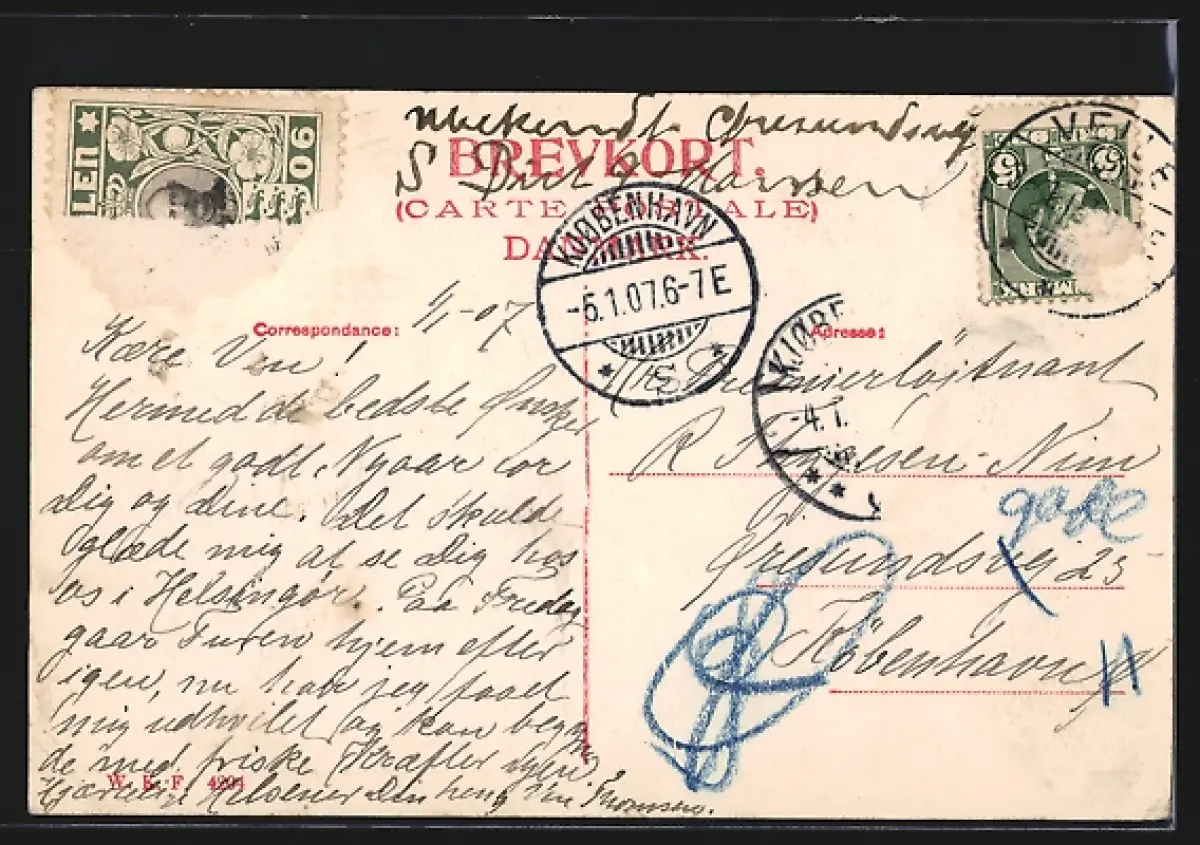 LEN ★
06
ubekendt Øresundsvej
BREVKORT.
(CARTE POSTALE)
DANMARK.
KJØBENHAVN
-5.1.07.6-7E
S
5 5
VEJLE
KJØBE
-4.1.
Correspondance:
1/1-07
Adresse:
Kære Ven!
Hermed de bedste Ønsker
om et godt Nyaar for
Dig og dine. Det skulde
glæde mig at se Dig hos
os i Helsingør. Paa Fredag
gaar Turen hjem efter
igen, nu har jeg faaet
mig udhvilet og kan begyn
de med friske Kræfter igen
Hjertelig Hilsener Din heng. Ven
W. K. F. 4294
Hr. Premierløjtnant
R -Nim
gade
Øresundsvej 23
København